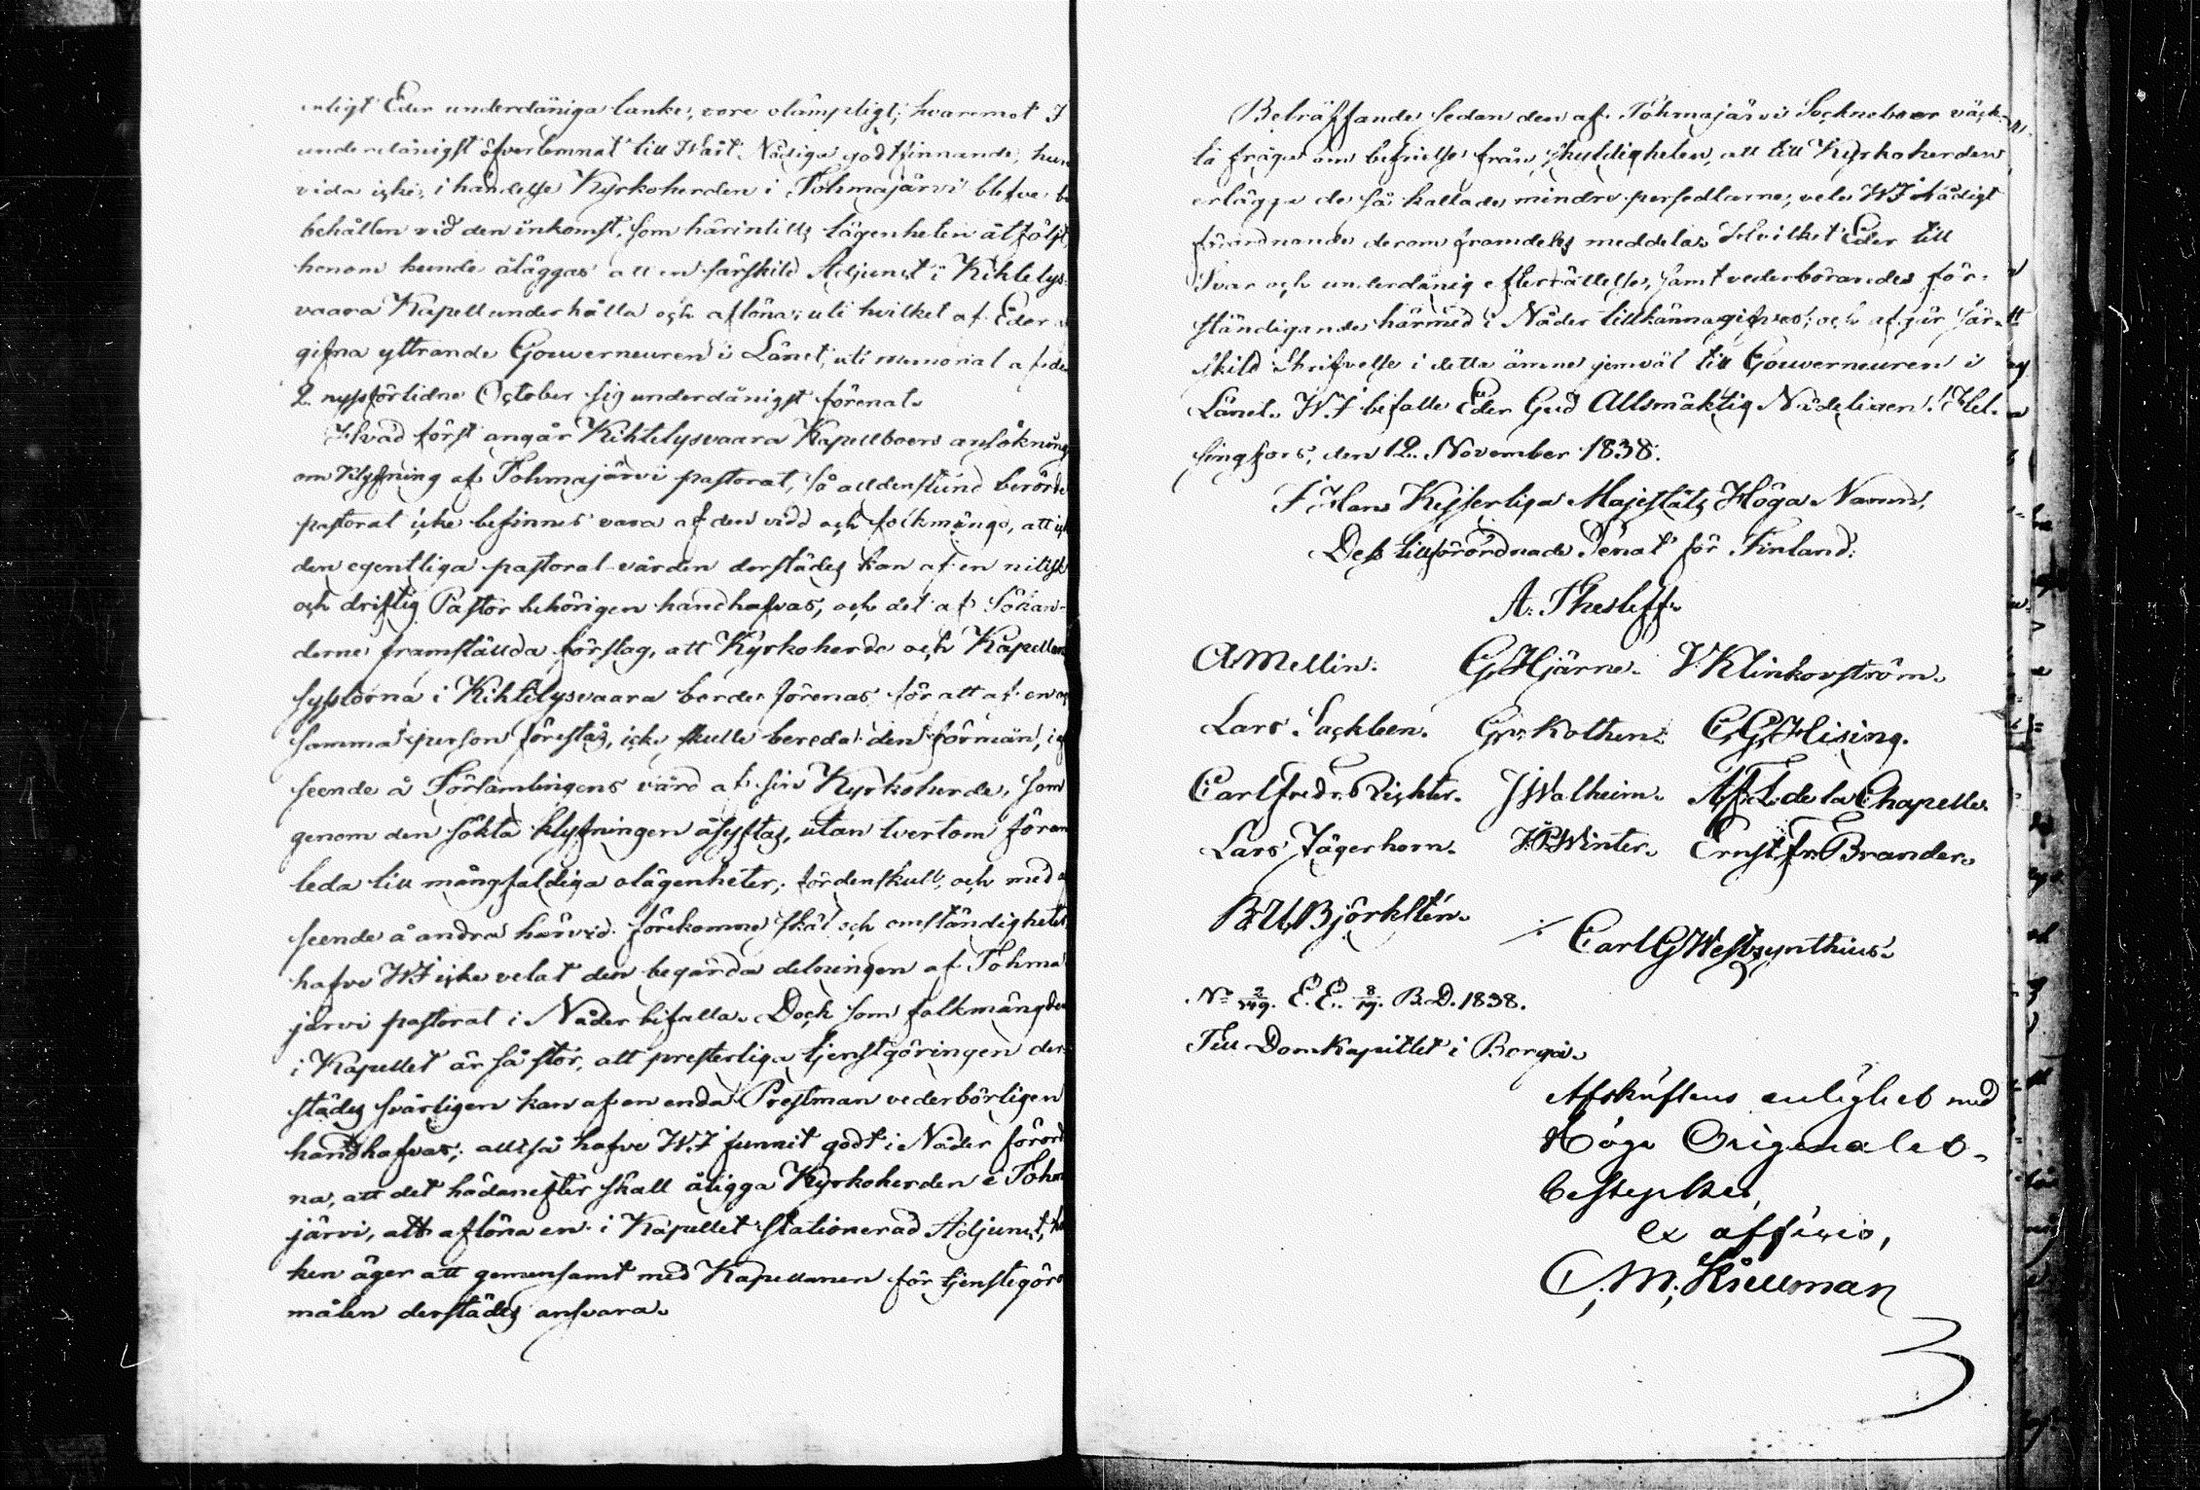 enligt Eder underdåniga tanke, vore olämpligt; hvaremot I
underdånigst öfverlemnat till Wårt Nådiga godtfinnande, huru
vida icke, i händelse Kyrkoherden i Tohmajärvi blefve bi
behållen vid den inkomst, som härintills lägenheten åtföljt,
honom kunde åläggas att en särskild Adjunct i Kihtelys-
vaara Kapell underhålla och aflöna; uti hvilket af Eder
gifna yttrande Gouverneuren i Länet, uti memorial af den
2 nyssförlidne October sig underdånigst förenat.
Hvad först angår Kihtelysvaara Kapellboers ansökning
om klyfning af Tohmajärvi pastorat, så alldenstund berörde
pastorat icke befinnes vara af den vidd och folkmängd, att ej
den egentliga pastoral-vården derstädes kan af en nitisk
och driftig Pastor behörigen handhafvas, och det af Sökan-
derne framställda förslag, att Kyrkoherde och Kapellans
sysslorna i Kihtelysvaara borde förenas för att af en och
samma person förestås, icke skulle bereda den förmån, i af
seende å Församlingens vård af sin Kyrkoherde, som
genom den sökta klyfningen åsyftas, utan tvertom föran
leda till mångfaldiga olägenheter; fördenskull, och med af
seende å andra härvid förekomne skäl och omständigheter
hafve WI icke velat den begärda delningen af Tohma
järvi pastorat i Nåder bifalla. Dock som folkmängden
i Kapellet är så stor, att presterliga tjenstgöringen der-
städes svårligen kan af en enda Prestman vederbörligen
handhafvas; alltså hafve WI funnit godt i Nåder förord
na, att det hädanefter skall åligga Kyrkoherden i Tohma
järvi, att aflöna en i Kapellet stationerad Adjunct, hvil
ken äger att gemensamt med Kapellanen för tjenstegöro
målen derstädes ansvara.
Beträffande sedan den af Tohmajärvi Sockneboer väck-
ta fråga om befrielse från skuldigheten, att till Kyrkoherden
erlägga de så kallade mindre persedlarne; vele WI Nådigt
förordnande derom framdeles meddela. Hvilket Eder till
Svar och underdånig efterrättelse, samt vederbörandes för-
ständigande härmed i Nåder tillkännagifves; och afgår sär-
skild skrifvelse i detta ämne jemväl till Gouverneuren i
Länet. WI befalle Eder Gud Allsmäktig Nådeligen! Hel-
singfors, den 12. November 1838.
I Hans Kejserliga Majestäts Höga Namn,
Dess tillförordnade Senat för Finland:
A. Thesleff.
A Mellin. G. Hjärne. V. Klinkovström.
Lars Sackleen. G. v. Kothen. C. G. Hising.
Carl Fredr. Richter. J Walheim. A. F. L. de la Chapelle.
Lars Jägerhorn. H. P. Winter. Ernst Fr. Brander.
B. U. Björkstén. ./. Carl G Westzynthius.
No 2/449. E. E. 8/19. B. D. 1838.
Till Domkapitlet i Borgå.
Afskriftens enlighet med
Höga Originalet,
bestyrker,
ex officio,
C. M. Kiellman